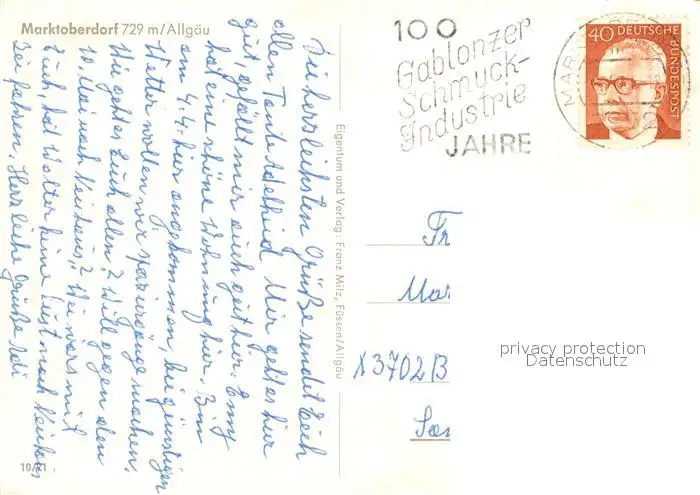 Marktoberdorf 729 m/Allgäu
Die herzlichsten Grüße sendet Euch
allen Tante Adelheid. Mir geht es hier
gut, gefällt mir auch gut hier. Emmy
hat eine schöne Wohnung hier. Bin
am 4.4. hier angekommen, bei günstigen
Wetter wollen wir spaziergänge machen.
Wie geht es Euch allen? Will gegen den
10. Mai nach Neuhaus? Wie wars mit
Euch, hat Walter keine Lust nach Neuhaus
zu fahren. Herzliche Grüße
10/21
Eigentum und Verlag: Franz Milz, Füssen/Allgäu
100
Gablonzer
Schmuck-
Industrie
JAHRE
MAR
40 DEUTSCHE
BUNDESPOST
Fr
Mar
X3702 B
privacy protection
Datenschutz